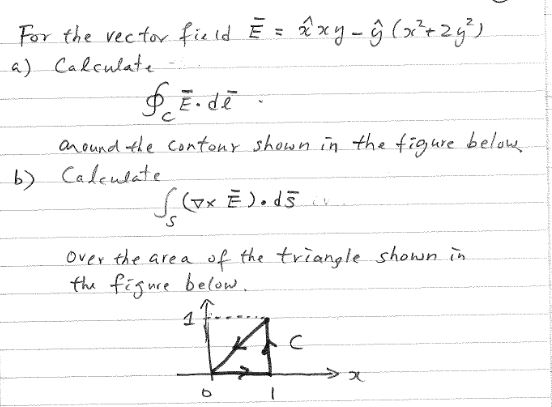 For the vector field Ē = x̂xy - ŷ(x²+2y²)
a) Calculate
∮c Ē · dē .
around the contour shown in the figure below
b) Calculate
∫s (∇× Ē) · ds̄
Over the area of the triangle shown in
the figure below.
1
C
x
0 1